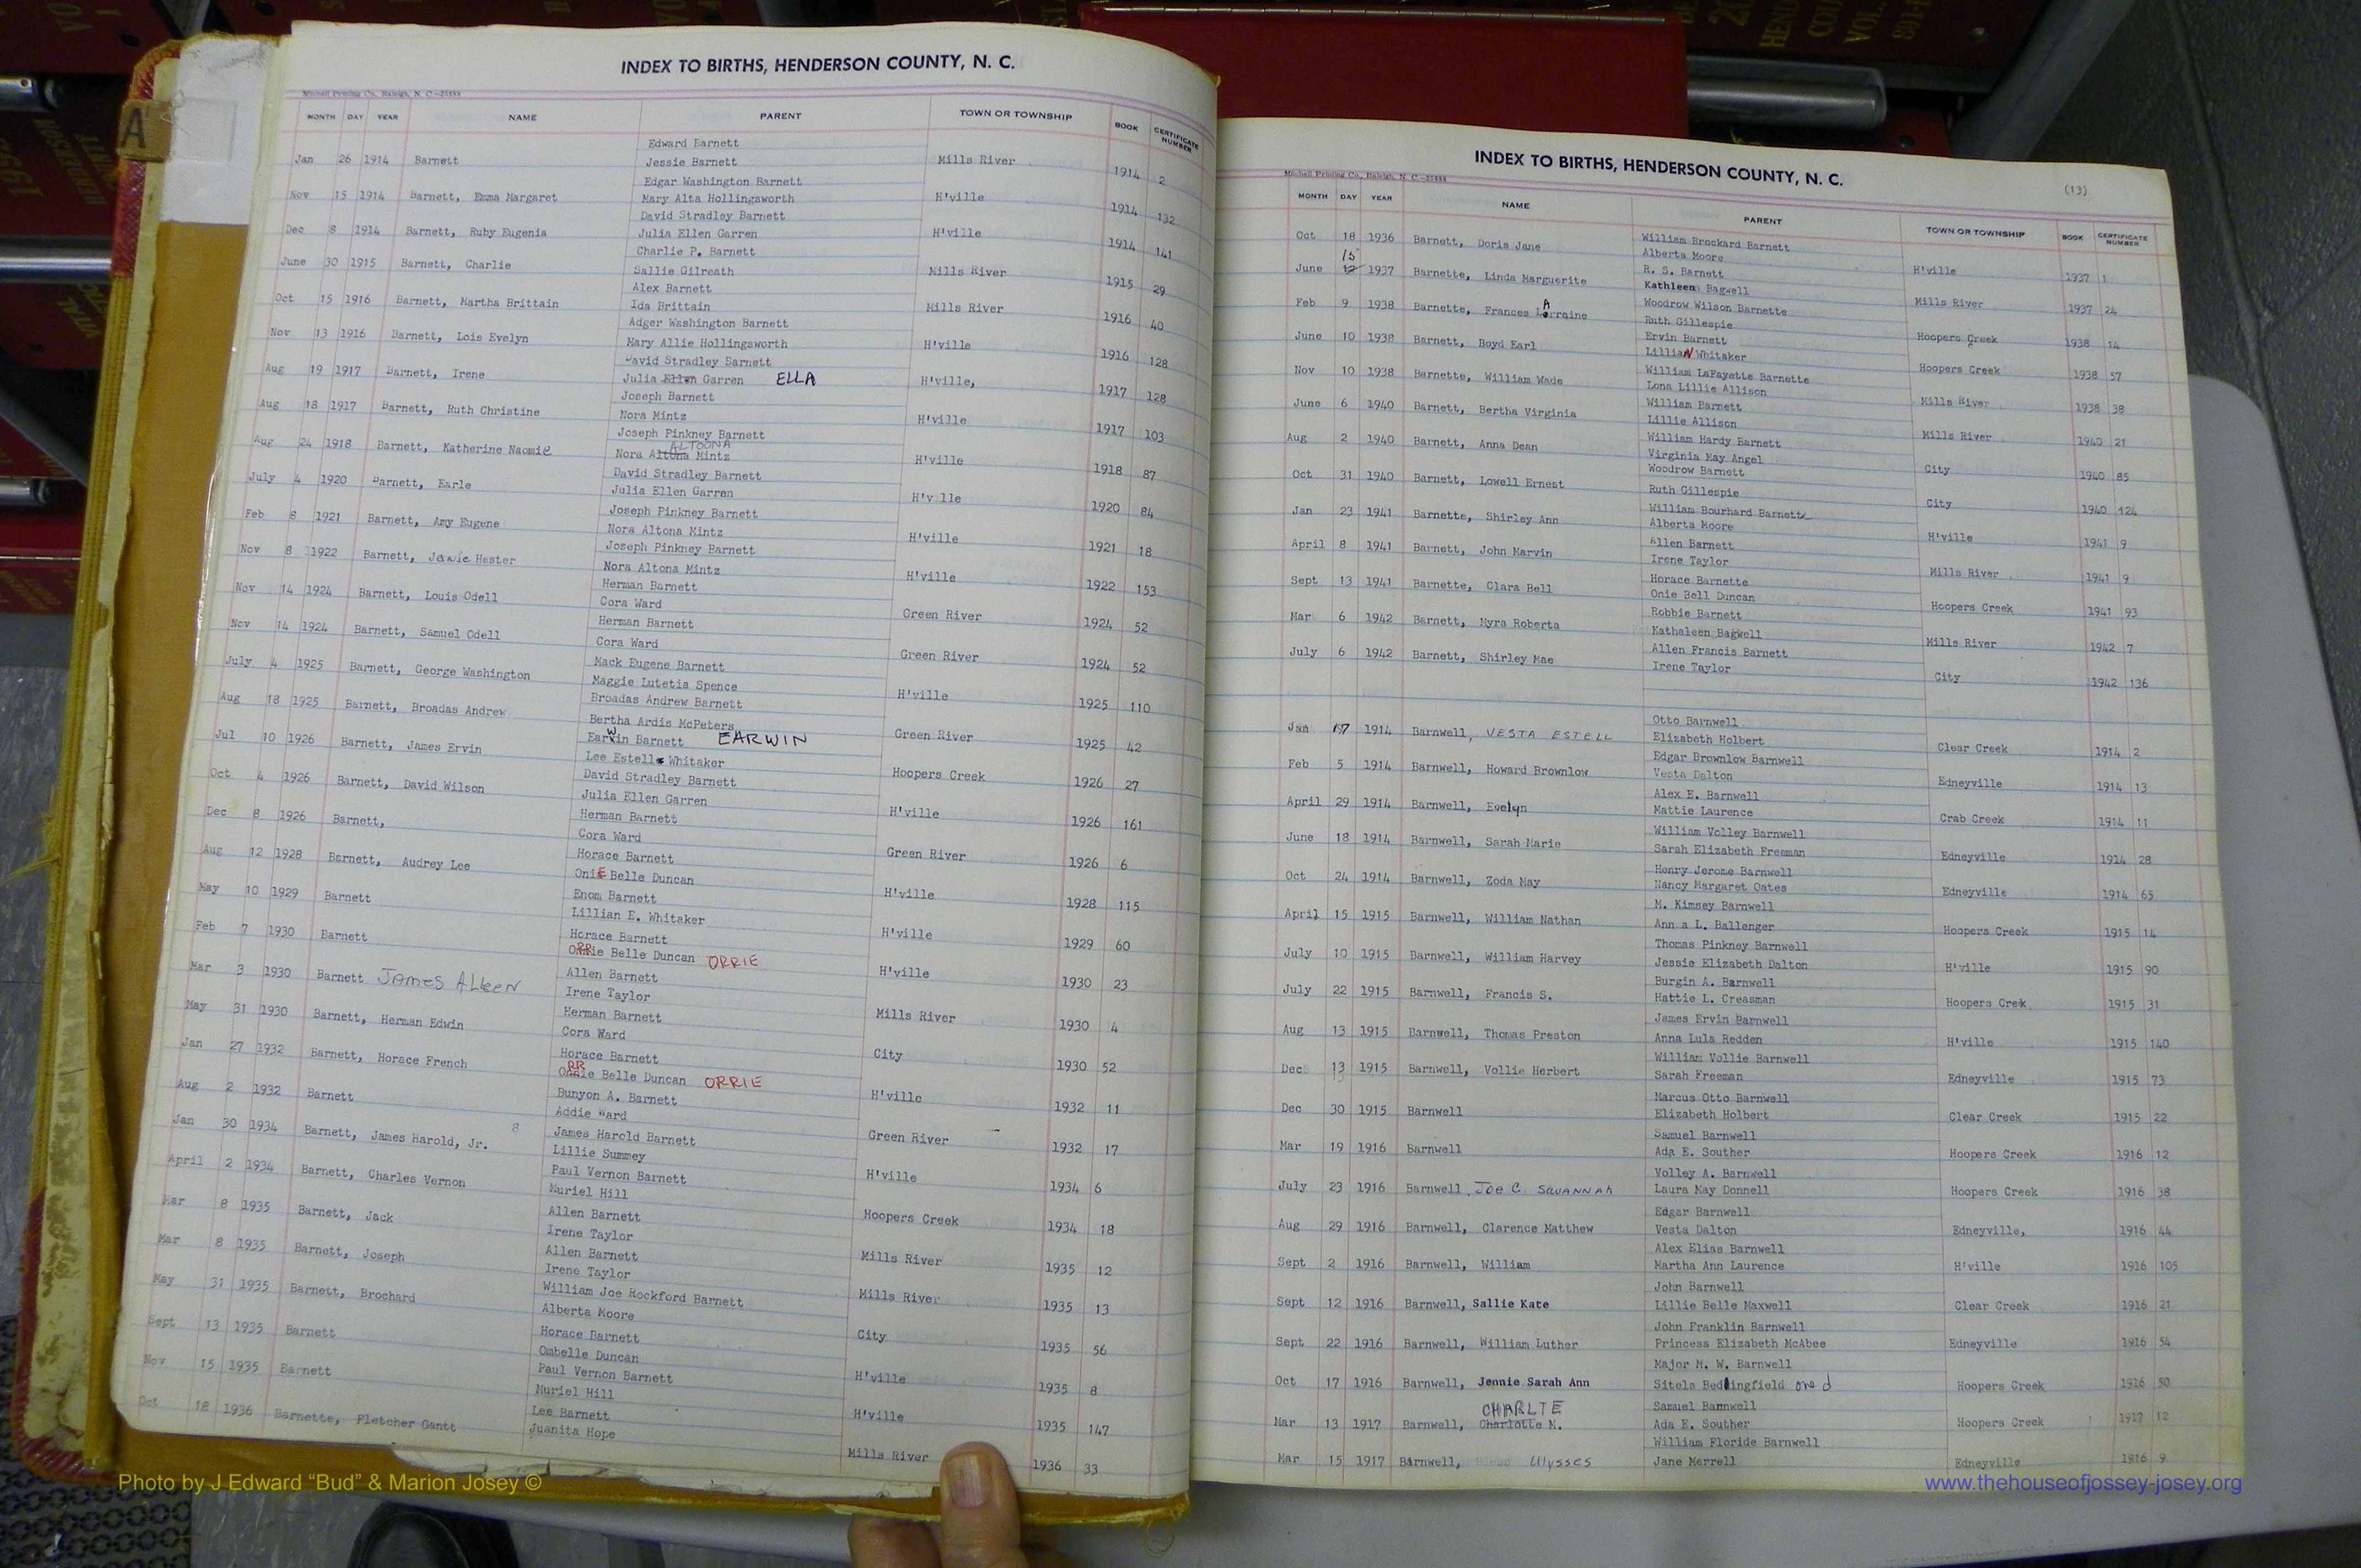 INDEX TO BIRTHS, HENDERSON COUNTY, N. C.
Mitchell Printing Co., Raleigh, N. C.
MONTH DAY YEAR NAME PARENT TOWN OR TOWNSHIP BOOK CERTIFICATE NUMBER
Edward Barnett
Jan 26 1914 Barnett Jessie Barnett Mills River 1914 2
Edgar Washington Barnett
Nov 15 1914 Barnett, Emma Margaret Mary Alta Hollingsworth H'ville 1914 132
David Stradley Barnett
Dec 8 1914 Barnett, Ruby Eugenia Julia Ellen Garren H'ville 1914 141
Charlie P. Barnett
June 30 1915 Barnett, Charlie Sallie Gilreath Mills River 1915 29
Alex Barnett
Oct 15 1916 Barnett, Martha Brittain Ida Brittain Mills River 1916 40
Adger Washington Barnett
Nov 13 1916 Barnett, Lois Evelyn Mary Allie Hollingsworth H'ville 1916 128
David Stradley Barnett
Aug 19 1917 Barnett, Irene Julia Ellen Garren ELLA H'ville, 1917 128
Joseph Barnett
Aug 18 1917 Barnett, Ruth Christine Nora Mintz H'ville 1917 103
Joseph Pinkney Barnett
ALTOONA
Aug 24 1918 Barnett, Katherine Naomie Nora Altona Mintz H'ville 1918 87
David Stradley Barnett
July 4 1920 Barnett, Earle Julia Ellen Garren H'v lle 1920 84
Joseph Pinkney Barnett
Feb 8 1921 Barnett, Amy Eugene Nora Altona Mintz H'ville 1921 18
Joseph Pinkney Barnett
Nov 8 1922 Barnett, Hester Nora Altona Mintz H'ville 1922 153
Herman Barnett
Nov 14 1924 Barnett, Louis Odell Cora Ward Green River 1924 52
Herman Barnett
Nov 14 1924 Barnett, Samuel Odell Cora Ward Green River 1924 52
Mack Eugene Barnett
July 4 1925 Barnett, George Washington Maggie Lutetia Spence H'ville 1925 110
Broadas Andrew Barnett
Aug 18 1925 Barnett, Broadas Andrew Bertha Ardis McPeters Green River 1925 42
Earwin Barnett EARWIN
Jul 10 1926 Barnett, James Ervin Lee Estelle Whitaker Hoopers Creek 1926 27
David Stradley Barnett
Oct 4 1926 Barnett, David Wilson Julia Ellen Garren H'ville 1926 161
Herman Barnett
Dec 8 1926 Barnett, Cora Ward Green River 1926 6
Horace Barnett
Aug 12 1928 Barnett, Audrey Lee Onie Belle Duncan H'ville 1928 115
Enom Barnett
May 10 1929 Barnett Lillian E. Whitaker H'ville 1929 60
Horace Barnett
Feb 7 1930 Barnett Orrie Belle Duncan ORRIE H'ville 1930 23
Allen Barnett
Mar 3 1930 Barnett JAMES ALLEEN Irene Taylor Mills River 1930 4
Herman Barnett
May 31 1930 Barnett, Herman Edwin Cora Ward City 1930 52
Horace Barnett
Jan 27 1932 Barnett, Horace French Orrie Belle Duncan ORRIE H'ville 1932 11
Bunyon A. Barnett
Aug 2 1932 Barnett Addie Ward Green River 1932 17
8
James Harold Barnett
Jan 30 1934 Barnett, James Harold, Jr. Lillie Summey H'ville 1934 6
Paul Vernon Barnett
April 2 1934 Barnett, Charles Vernon Muriel Hill Hoopers Creek 1934 18
Allen Barnett
Mar 8 1935 Barnett, Jack Irene Taylor Mills River 1935 12
Allen Barnett
Mar 8 1935 Barnett, Joseph Irene Taylor Mills River 1935 13
William Joe Rockford Barnett
May 31 1935 Barnett, Brochard Alberta Moore City 1935 56
Horace Barnett
Sept 13 1935 Barnett Ombelle Duncan H'ville 1935 8
Paul Vernon Barnett
Nov 15 1935 Barnett Muriel Hill H'ville 1935 147
Lee Barnett
Oct 18 1936 Barnette, Fletcher Gantt Juanita Hope Mills River 1936 33
INDEX TO BIRTHS, HENDERSON COUNTY, N. C.
(13)
Mitchell Printing Co., Raleigh, N. C.
MONTH DAY YEAR NAME PARENT TOWN OR TOWNSHIP BOOK CERTIFICATE NUMBER
William Brockard Barnett
Oct 18 1936 Barnett, Doris Jane Alberta Moore H'ville 1937 1
15
R. S. Barnett
June 12 1937 Barnette, Linda Marguerite Kathleen Bagwell Mills River 1937 24
Woodrow Wilson Barnette
Feb 9 1938 Barnette, Frances Larraine Ruth Gillespie Hoopers Creek 1938 14
Ervin Barnett
June 10 1938 Barnett, Boyd Earl Lillian Whitaker Hoopers Creek 1938 57
William LaFayette Barnette
Nov 10 1938 Barnette, William Wade Lona Lillie Allison Mills River 1938 38
William Barnett
June 6 1940 Barnett, Bertha Virginia Lillie Allison Mills River 1940 21
William Hardy Barnett
Aug 2 1940 Barnett, Anna Dean Virginia May Angel City 1940 85
Woodrow Barnett
Oct 31 1940 Barnett, Lowell Ernest Ruth Gillespie City 1940 124
William Bourhard Barnette
Jan 23 1941 Barnette, Shirley Ann Alberta Moore H'ville 1941 9
Allen Barnett
April 8 1941 Barnett, John Marvin Irene Taylor Mills River 1941 9
Horace Barnette
Sept 13 1941 Barnette, Clara Bell Onie Bell Duncan Hoopers Creek 1941 93
Robbie Barnett
Mar 6 1942 Barnett, Myra Roberta Kathaleen Bagwell Mills River 1942 7
Allen Francis Barnett
July 6 1942 Barnett, Shirley Mae Irene Taylor City 1942 136
Otto Barnwell
Jan 17 1914 Barnwell, VESTA ESTELL Elizabeth Holbert Clear Creek 1914 2
Edgar Brownlow Barnwell
Feb 5 1914 Barnwell, Howard Brownlow Vesta Dalton Edneyville 1914 13
Alex E. Barnwell
April 29 1914 Barnwell, Evelyn Mattie Laurence Crab Creek 1914 11
William Volley Barnwell
June 18 1914 Barnwell, Sarah Marie Sarah Elizabeth Freeman Edneyville 1914 28
Henry Jerome Barnwell
Oct 24 1914 Barnwell, Zoda May Nancy Margaret Oates Edneyville 1914 65
M. Kimsey Barnwell
April 15 1915 Barnwell, William Nathan Ann a L. Ballenger Hoopers Creek 1915 14
Thomas Pinkney Barnwell
July 10 1915 Barnwell, William Harvey Jessie Elizabeth Dalton H'ville 1915 90
Burgin A. Barnwell
July 22 1915 Barnwell, Francis S. Hattie L. Creasman Hoopers Crek 1915 31
James Ervin Barnwell
Aug 13 1915 Barnwell, Thomas Preston Anna Lula Redden H'ville 1915 140
William Vollie Barnwell
Dec 13 1915 Barnwell, Vollie Herbert Sarah Freeman Edneyville 1915 73
Marcus Otto Barnwell
Dec 30 1915 Barnwell Elizabeth Holbert Clear Creek 1915 22
Samuel Barnwell
Mar 19 1916 Barnwell Ada E. Souther Hoopers Creek 1916 12
Volley A. Barnwell
July 23 1916 Barnwell, JOE C. SQUANNAH Laura May Donnell Hoopers Creek 1916 38
Edgar Barnwell
Aug 29 1916 Barnwell, Clarence Matthew Vesta Dalton Edneyville, 1916 44
Alex Elias Barnwell
Sept 2 1916 Barnwell, William Martha Ann Laurence H'ville 1916 105
John Barnwell
Sept 12 1916 Barnwell, Sallie Kate Lillie Belle Maxwell Clear Creek 1916 21
John Franklin Barnwell
Sept 22 1916 Barnwell, William Luther Princess Elizabeth McAbee Edneyville 1916 54
Major M. W. Barnwell
Oct 17 1916 Barnwell, Jennie Sarah Ann Sitela Bedlingfield Hoopers Creek 1916 50
CHARLTE
Samuel Barnwell
Mar 13 1917 Barnwell, Charlotte M. Ada E. Souther Hoopers Creek 1917 12
William Floride Barnwell
Mar 15 1917 Barnwell, Ulysses Jane Merrell Edneyville 1916 9
Photo by J Edward “Bud” & Marion Josey ©
www.thehouseofjossey-josey.org